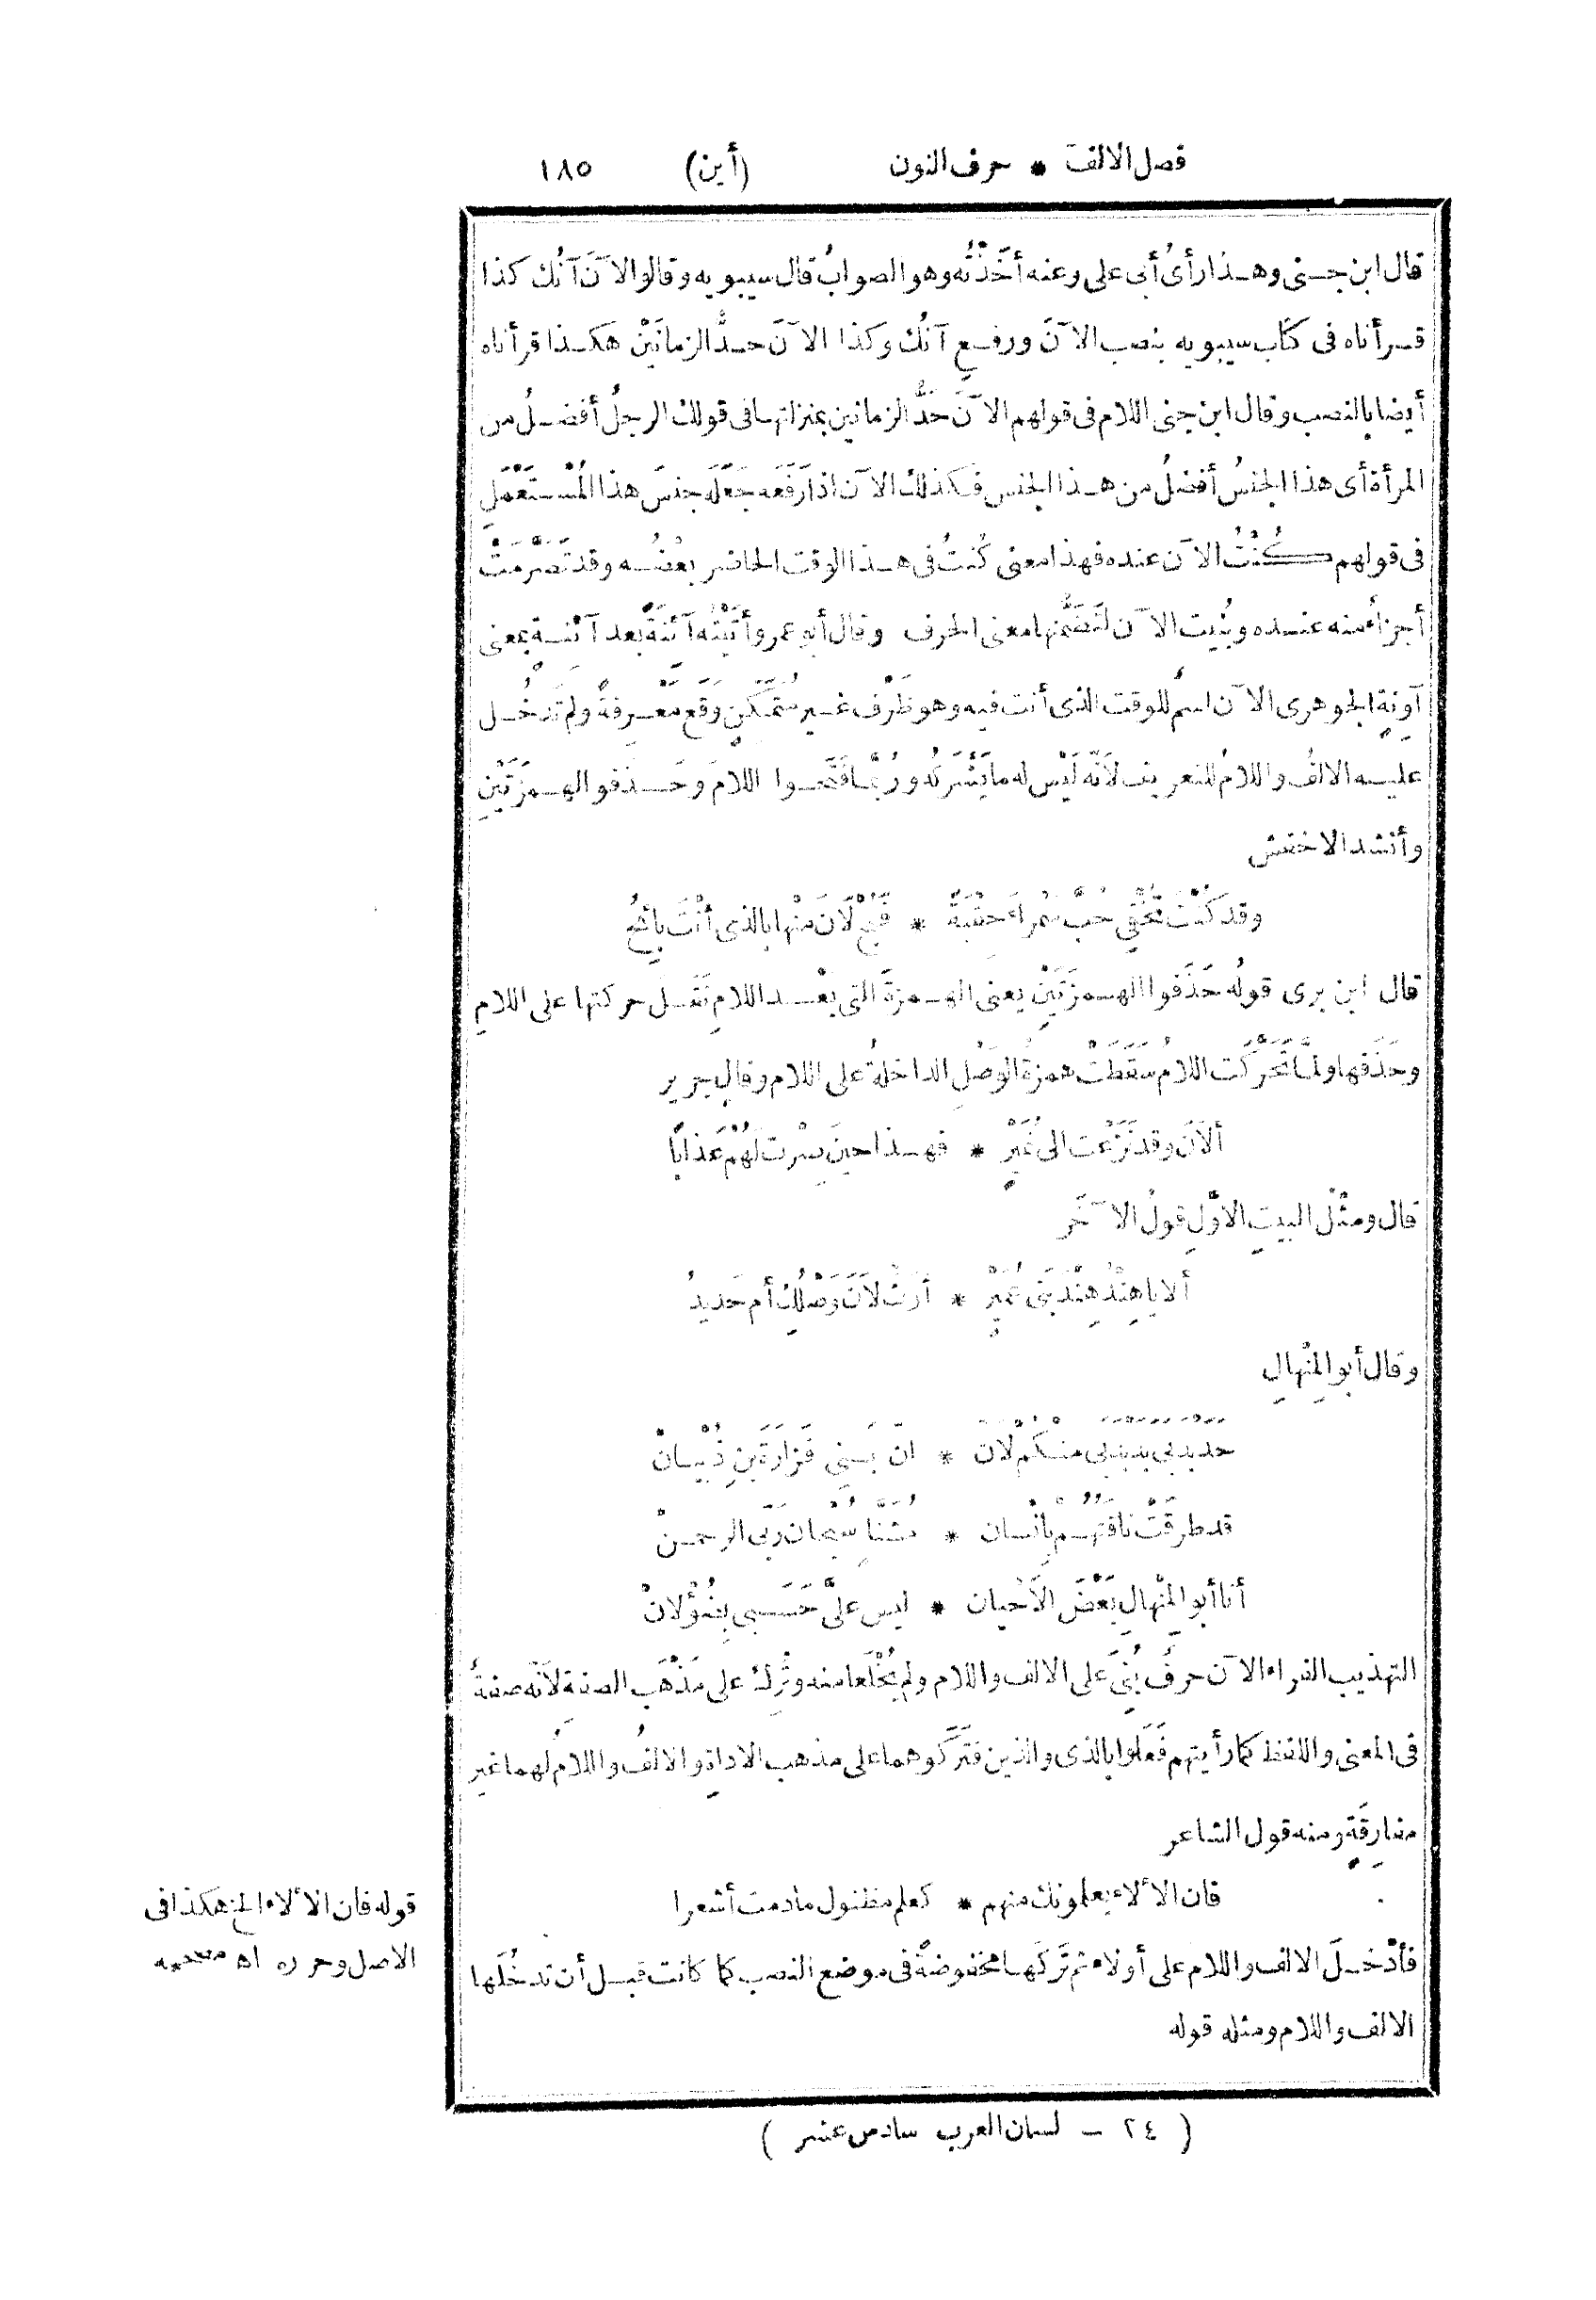 فصل الالف * حرف النون (أين) ١٨٥
قال ابن جنى وهذا رأىُ أبى على وعنه أَخَذْتُه وهو الصوابُ قال سيبويه وقالوا الآنَ آنُك كذا
قرأناه فى كتاب سيبويه بنصب الآنَ ورفعِ آنُك وكذا الآنَ حدُّ الزمانَيْنِ هكذا قرأناه
أيضا بالنصب وقال ابن جنى اللام فى قولهم الآنَ حَدُّ الزمانين بمنزلتها فى قولك الرجلُ أفضلُ من
المرأة أى هذا الجنسُ أفضلُ من هذا الجنس فكذلك الآن اذا رَفَعَه جَعَلَه جنسَ هذا المُسْتَعْمَلِ
فى قولهم كُنْتُ الآن عنده فهذا معنى كُنتُ فى هذا الوقت الحاضر بعْضُه وقد تَصَرَّمَتْ
أجزاءُ منه عنده وبُنيت الآن لتَضَمُّنها معنى الحرف وقال أبو عمرو أَتَيْتُه آئنةً بعد آئنة بمعنى
آوِنةٍ الجوهرى الآن اسمٌ للوقت الذى أنت فيه وهو ظَرْف غير مُتَمَكِّنٍ وَقَع مَعْرِفةً ولم تدخُل
عليه الالفُ واللامُ للتعريف لاَنَّه لَيْس له ما يَشْرَكُه ورُبَّما فَتَحوا اللامَ وحَذَفو الهمزَتَيْنِ
وأنشد الاخفش
وقد كُنْتَ تُخْفِى حُبَّ سَمْراءَ حِقْبَةً * فَبُحْ لَانَ منْها بالذى أنْتَ بائحُ
قال ابن برى قولُه حَذَفوا الهمزَتَيْنِ يعنى الهمزةَ التى بَعْد اللامِ نَقَل حركتها على اللامِ
وحَذَفها ولمَّا تَحَرَّكَت اللامُ سَقَطَتْ همزةُ الوَصْلِ الداخلةُ على اللام وقال جرير
ألَانَ وقد نَزَعْت الى نُمَيْرٍ * فهذا حينَ صِرْت لَهُمْ عَذابًا
قال ومثْلُ البيتِ الاَوَّلِ قولُ الآخَر
ألا يا هِنْدُ هِنْدَ بَنى عُمَيْرٍ * أَرَثٌّ لَانَ وَصْلُكِ أم حَديدُ
وقال أبو المِنْهالِ
حَدَبْدَبَى بَدَبْدَبَى منْكُمْ لَانْ * انَّ بَنِى فَزارَةَ بنِ ذُبْيانْ
قد طرقَتْ ناقَتُهُم بانْسان * مُشَنَّإٍ سُبْحان رَبِّى الرحمنْ
أنا أبو المِنْهالِ بَعْضَ الاَحْيان * ليس علىَّ حَسَبى بِضُؤْلانْ
التهذيب الفراء الآن حرفٌ بُنِىَ على الالف واللام ولم يُخْلَعا منه وتُرِك على مَذْهَب الصفةِ لاَنَّه صفةٌ
فى المعنى واللفظ كما رأيتهم فَعَلوا بالذى والذين فَتَرَكوهما على مذهب الاداةِ والالفُ واللامُ لهما غير
مفارِقَةٍ ومنه قول الشاعر
فان الألاء يعلمونك منهم * كعلم مظنول مادمت أشعرا
فأدْخلَ الالف واللام على أولاء ثم تَرَكَها مخفوضةً فى موضع النصب كما كانت قبل أن تدخُلَها
الالف واللام ومثله قوله
قوله فان الألاء الخ هكذا فى
الاصل وحرره اه مصححه
( ٢٤ – لسان العرب سادس عشر )